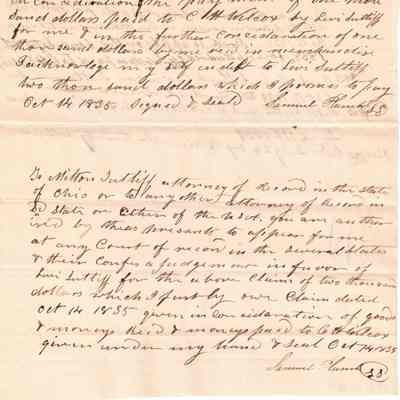 In consideration of the payment of one thou
sand dollars paid to C H Wilcox by Levi Sutliff
for me & in the further consideration of one
thousand dollars by me rec'd in merchandise
I acknowledge my self indebt to Levi Sutliff
two thousand dollars which I promis to pay
Oct 14 1835 Signed & Seald Samuel SS
To Milton Sutliff attorney of Record in the state
of Ohio or to any other attorney of Record in
sd State or other of the U.S.A. you are author
ised by theas presants to appear for me
at any Court of record in the several States
& their Confess a judgement in favor of
Levi Sutliff for the above Claim of two thousan
dollars which I justly owe Claim dated
Oct 14 1835 given in consideration of goods
& moneys Recd & moneys paid to C H Wilcox
given under my hand & Seal Oct 14 1835
Samuel SS